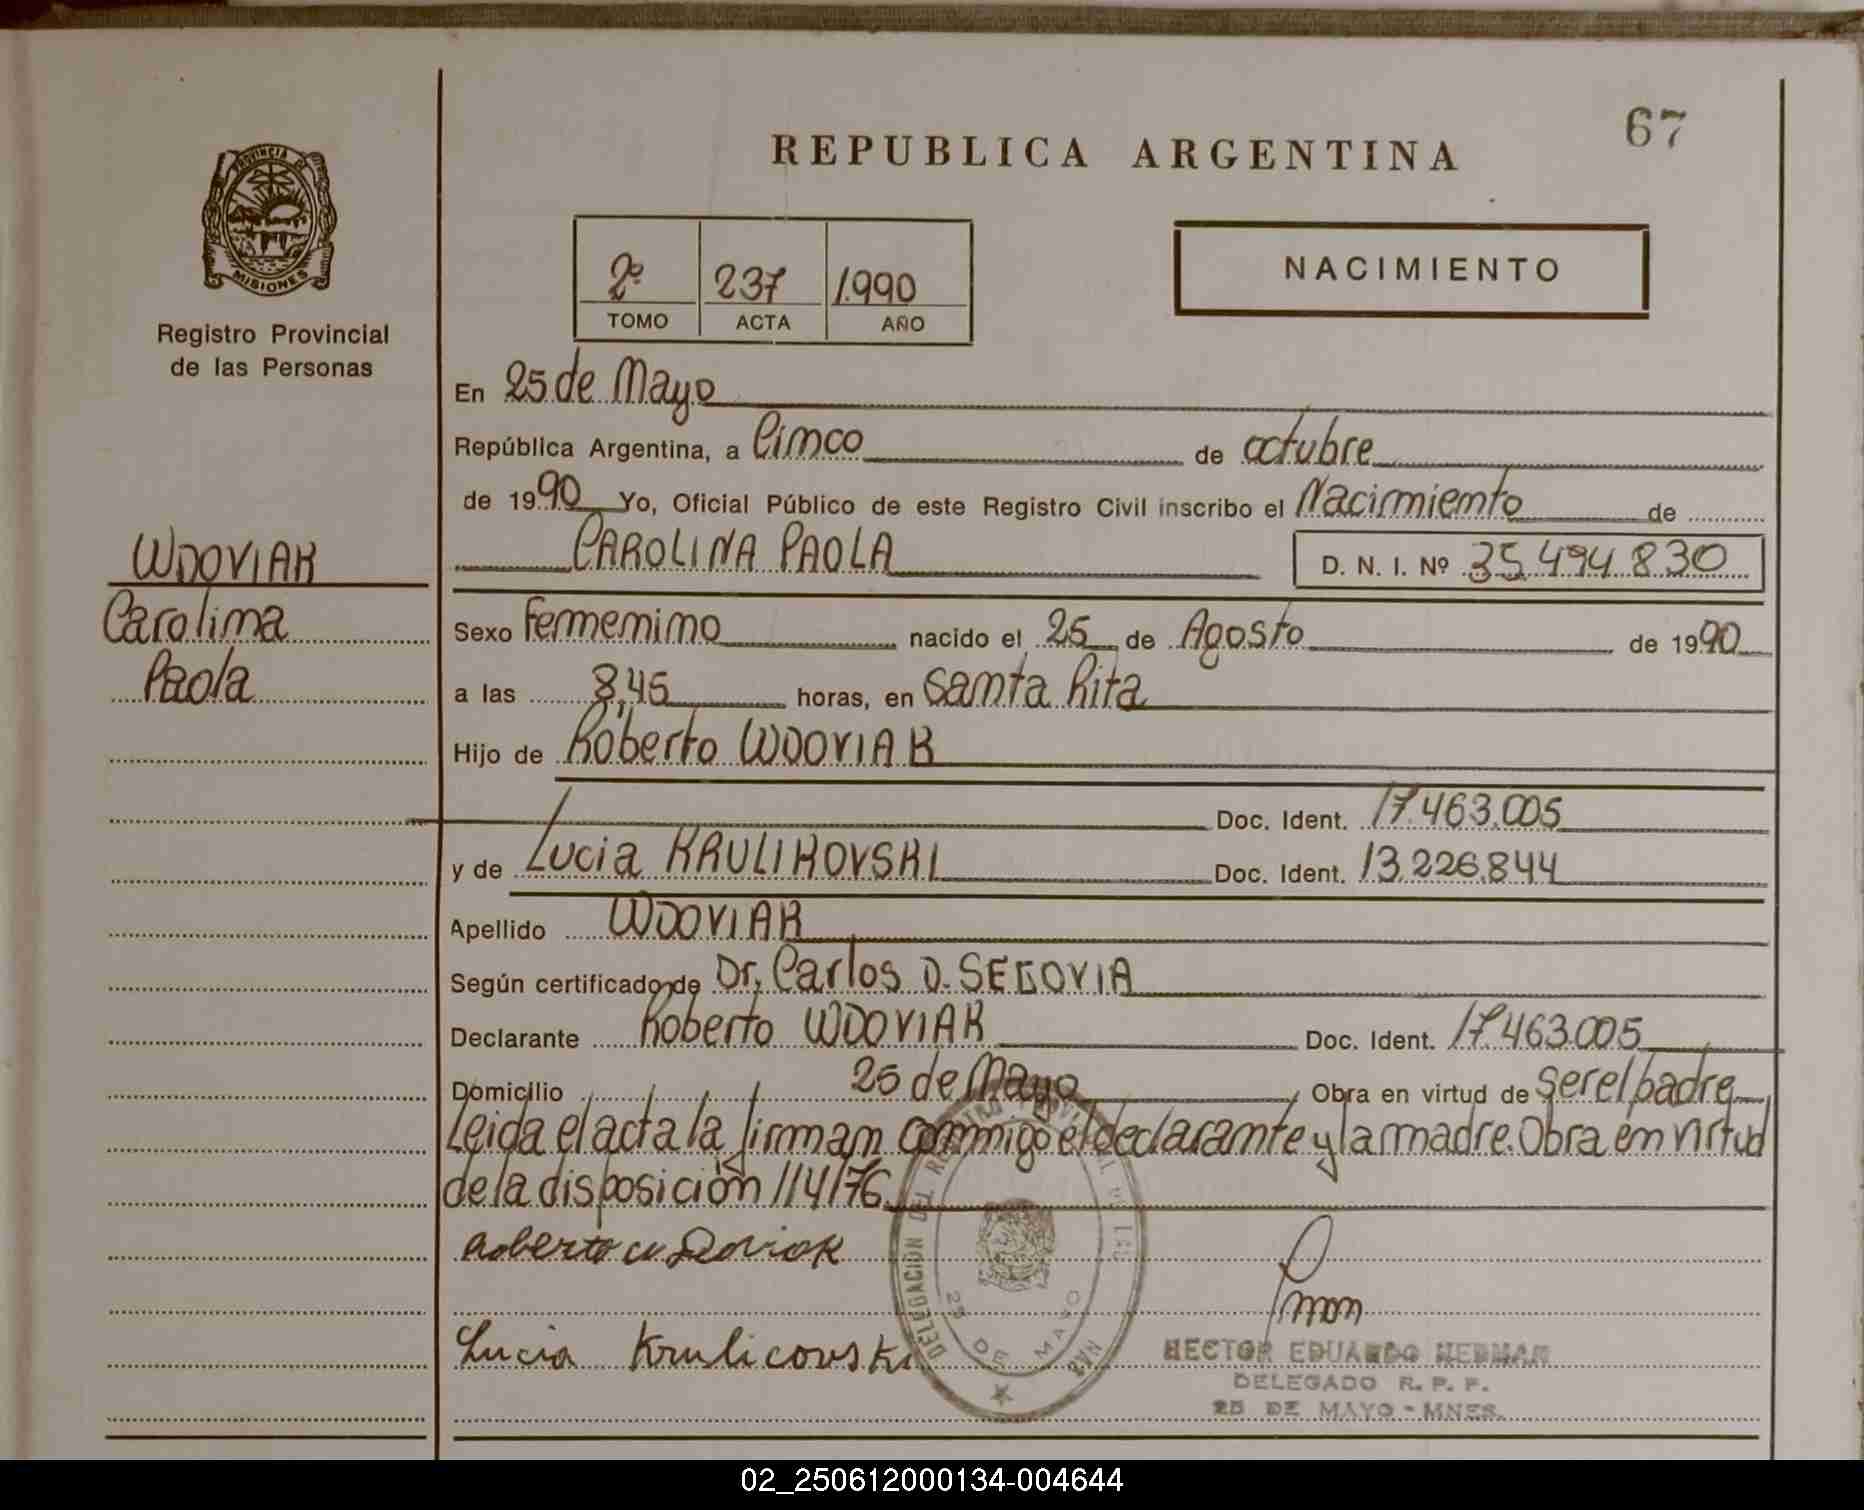 67
REPUBLICA ARGENTINA
PROVINCIA DE
MISIONES
Registro Provincial
de las Personas
2º 237 1.990
TOMO ACTA AÑO
NACIMIENTO
En 25 de Mayo
República Argentina, a Cinco de octubre
de 1990 Yo, Oficial Público de este Registro Civil inscribo el Nacimiento de
CAROLINA PAOLA D. N. I. Nº 35.494.830
WDOVIAK
Carolina
Paola
Sexo Femenino nacido el 25 de Agosto de 1990
a las 8,45 horas, en Santa Rita
Hijo de Roberto WDOVIAK
Doc. Ident. 17.463.005
y de Lucia KRULIKOVSKI Doc. Ident. 13.226.844
Apellido WDOVIAK
Según certificado de Dr, Carlos D. SEGOVIA
Declarante Roberto WDOVIAK Doc. Ident. 17.463.005
Domicilio 25 de Mayo Obra en virtud de ser el padre
Leida el acta la firman conmigo el declarante y la madre. Obra en virtud
de la disposición 114/76.
Roberto WDoviak
Lucia Krulicovski
DELEGACION DEL REGISTRO PROVINCIAL DE LAS
25 DE MAYO
HECTOR EDUARDO
DELEGADO R. P. P.
25 DE MAYO - MNES.
02_250612000134-004644